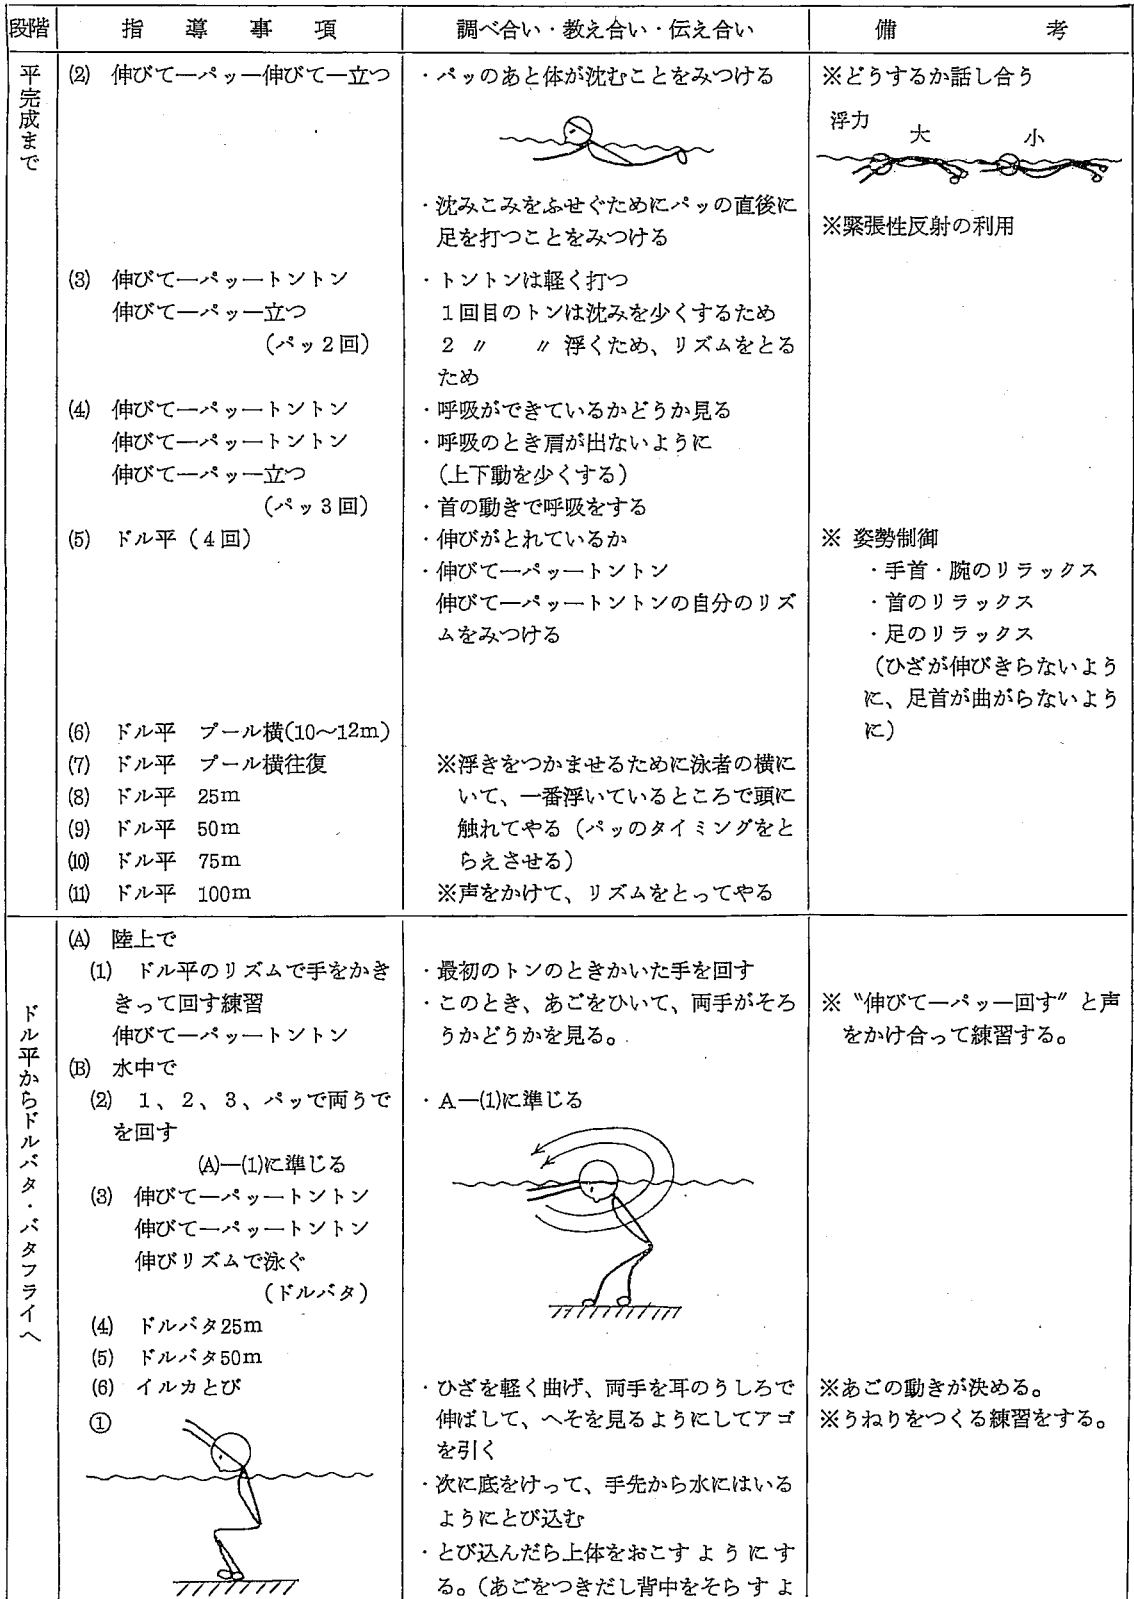 段階
指導事項
調べ合い・教え合い・伝え合い
備考
平完成まで
(2) 伸びて―パッ―伸びて―立つ
・パッのあと体が沈むことをみつける
・沈みこみをふせぐためにパッの直後に
足を打つことをみつける
※どうするか話し合う
浮力 大 小
※緊張性反射の利用
(3) 伸びて―パッ―トントン
伸びて―パッ―立つ
(パッ2回)
・トントンは軽く打つ
1回目のトンは沈みを少くするため
2 〃 〃 浮くため、リズムをとる
ため
(4) 伸びて―パッ―トントン
伸びて―パッ―トントン
伸びて―パッ―立つ
(パッ3回)
・呼吸ができているかどうか見る
・呼吸のとき肩が出ないように
(上下動を少くする)
・首の動きで呼吸をする
(5) ドル平(4回)
・伸びがとれているか
・伸びて―パッ―トントン
伸びて―パッ―トントンの自分のリズ
ムをみつける
※ 姿勢制御
・手首・腕のリラックス
・首のリラックス
・足のリラックス
(ひざが伸びきらないよう
に、足首が曲がらないよう
に)
(6) ドル平 プール横(10~12m)
(7) ドル平 プール横往復
(8) ドル平 25m
(9) ドル平 50m
(10) ドル平 75m
(11) ドル平 100m
※浮きをつかませるために泳者の横に
いて、一番浮いているところで頭に
触れてやる(パッのタイミングをと
らえさせる)
※声をかけて、リズムをとってやる
ドル平からドルバタ・バタフライへ
(A) 陸上で
(1) ドル平のリズムで手をかき
きって回す練習
伸びて―パッ―トントン
・最初のトンのときかいた手を回す
・このとき、あごをひいて、両手がそろ
うかどうかを見る。
※〝伸びて―パッ―回す〟と声
をかけ合って練習する。
(B) 水中で
(2) 1、2、3、パッで両うで
を回す
(A)―(1)に準じる
・A―(1)に準じる
(3) 伸びて―パッ―トントン
伸びて―パッ―トントン
伸びリズムで泳ぐ
(ドルバタ)
(4) ドルバタ25m
(5) ドルバタ50m
(6) イルカとび
①
・ひざを軽く曲げ、両手を耳のうしろで
伸ばして、へそを見るようにしてアゴ
を引く
・次に底をけって、手先から水にはいる
ようにとび込む
・とび込んだら上体をおこすようにす
る。(あごをつきだし背中をそらすよ
※あごの動きが決める。
※うねりをつくる練習をする。